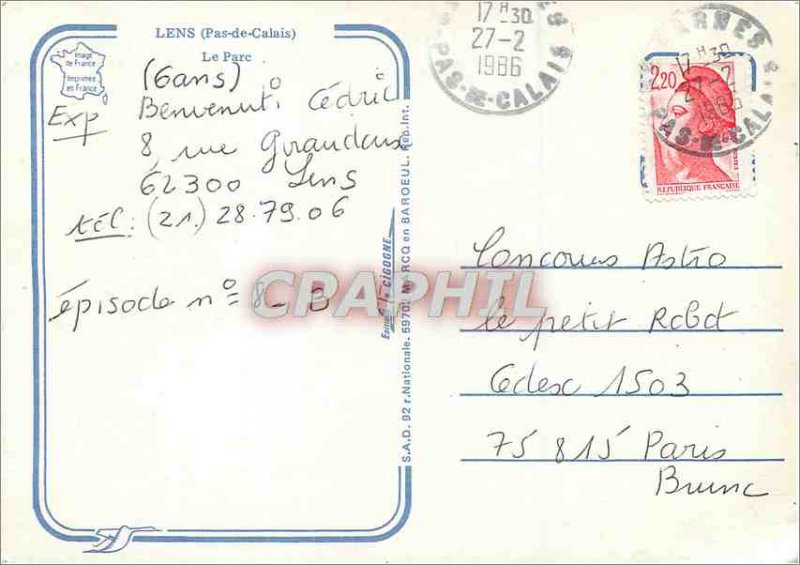 LENS (Pas-de-Calais)
Le Parc
Image
de France
Imprimée
en France
(6ans)
Exp Benvenuti Cédric
8, rue
62300 Lens
tél: (21.) 28.79.06
épisode n° 8_B
S.A.D. 92 r. Nationale. 59700 MARCQ en BAROEUL.
la CIGOGNE
CPARHIL
17 H 30
27-2
1986
PAS-DE-CALAIS
17 H 30
27-2
1986
PAS-DE-CALAIS
2,20
REPUBLIQUE FRANÇAISE
Concours Astro
le petit Robot
Cedex 1503
75 815 Paris
Brune